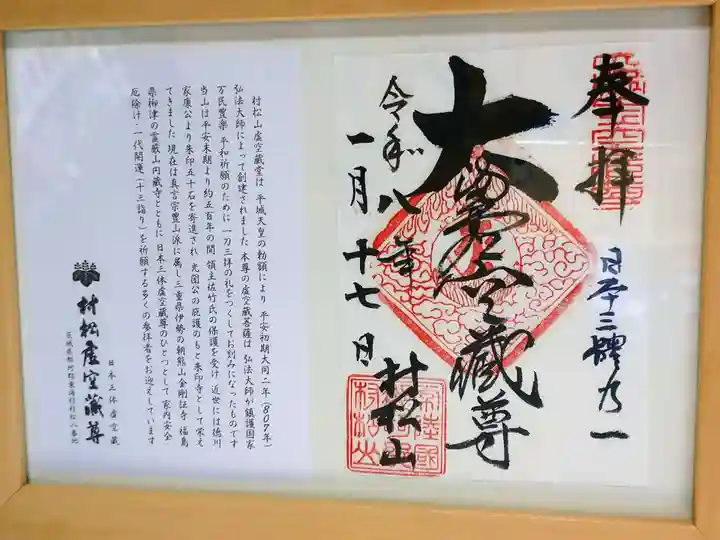 奉拝
日本三體乃一
大満虚空蔵尊
村松山
令和八年
一月十七日
村松山虚空蔵堂は 平城天皇の勅額により 平安初期大同二年(807年)
弘法大師によって創建されました 本尊の虚空蔵菩薩は 弘法大師が鎮護国家
万民豊楽 平和祈願のために 一刀三拝の礼をつくしてお刻みになったものです
当山は平安末期より約五百年の間 領主佐竹氏の保護を受け 近世には徳川
家康公より朱印五十石を寄進され 光圀公の庇護のもと朱印寺として栄え
てきました 現在は真言宗豊山派に属し三重県伊勢の朝熊山金剛証寺 福島
県柳津の霊巌山円蔵寺とともに 日本三体虚空蔵尊のひとつとして 家内安全
厄除け・一代開運(十三詣り)を祈願する多くの参拝者をお迎えしています
日本三体虚空蔵
村松虚空蔵尊
茨城県那珂郡東海村村松八番地